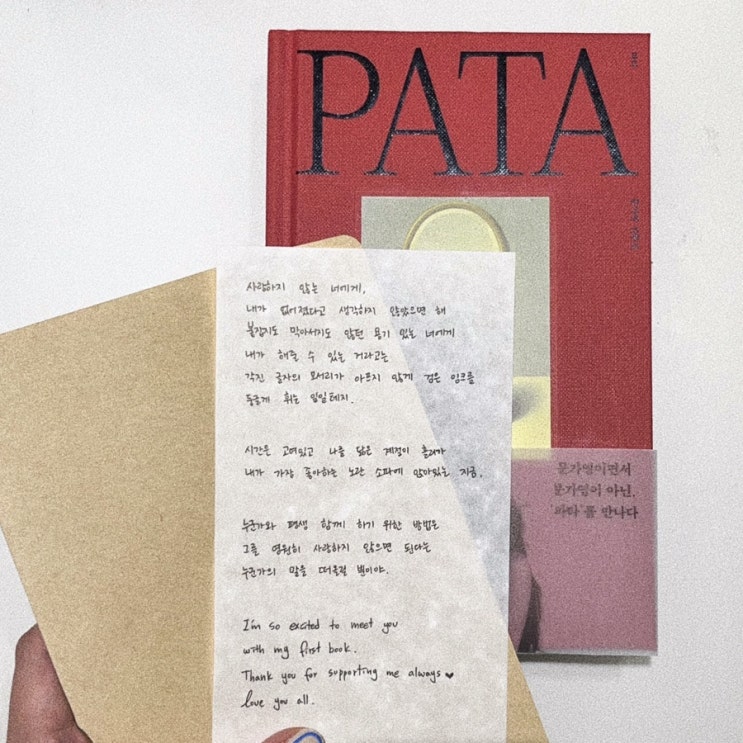 PATA
문가영이면서
문가영이 아닌,
'파타'를 만나다
사랑하지 않는 너에게,
내가 없어졌다고 생각하지 않았으면 해
붙잡지도 막아서지도 않던 용기 있는 너에게
내가 해줄 수 있는 거라고는
각진 글자의 모서리가 아프지 않게 검은 잉크를
둥글게 휘는 일일테지.
시간은 고여있고 나를 닮은 계절이 흘러가
내가 가장 좋아하는 노란 소파에 앉아있는 지금,
누군가와 평생 함께 하기 위한 방법은
그를 영원히 사랑하지 않으면 된다는
누군가의 말을 떠올릴 뿐이야.
I'm so excited to meet you
with my first book.
Thank you for supporting me always ♥
love you all.